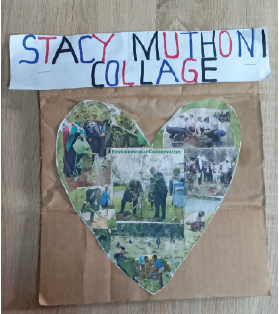 STACY MUTHONI
COLLAGE
Environmental Conservation